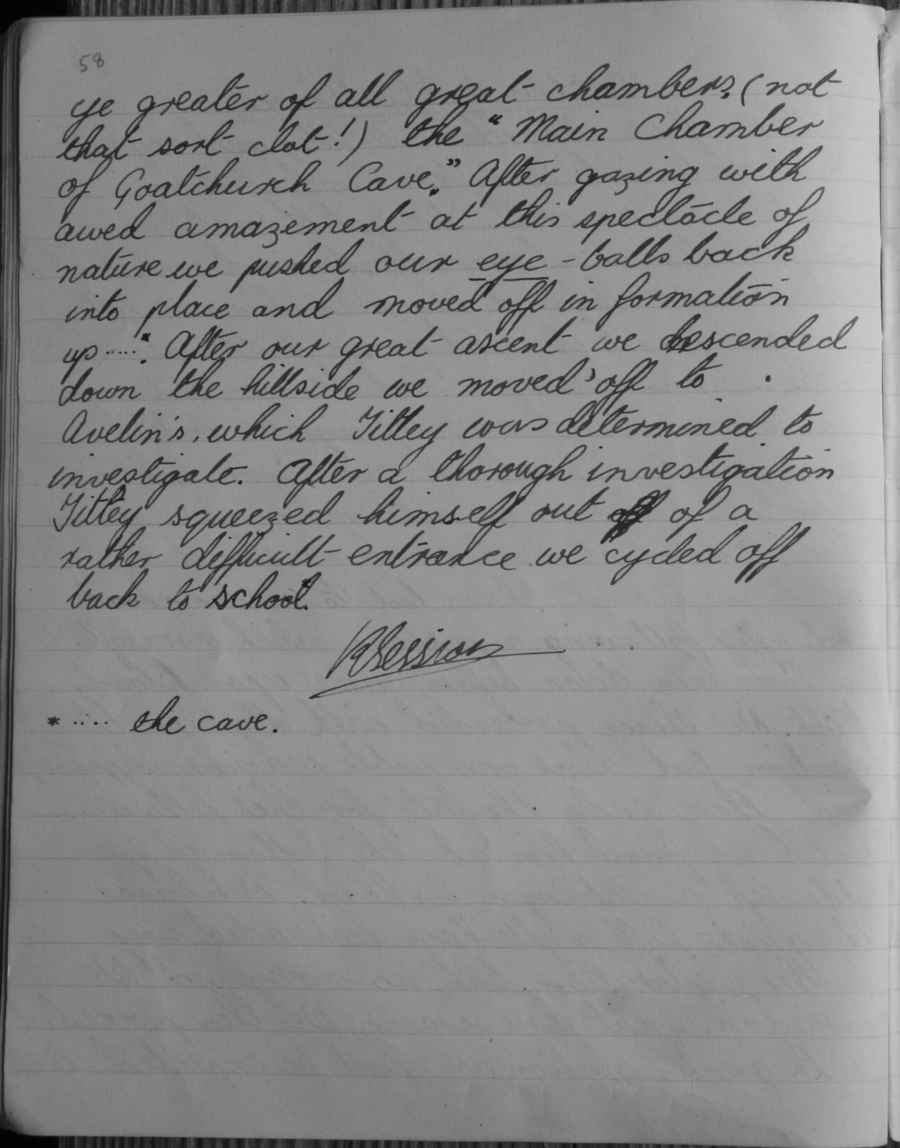 58
ye greater of all great chambers. (not
that sort clot!) the "Main Chamber
of Goatchurch Cave." After gazing with
awed amazement at this spectacle of
nature we pushed our eye-balls back
into place and moved off in formation
up ....* After our great ascent we descended
down the hillside we moved off to
Avelin's, which Titley was determined to
investigate. After a thorough investigation
Titley squeezed himself out of a
rather difficult entrance we cycled off
back to school.
* .... the cave.